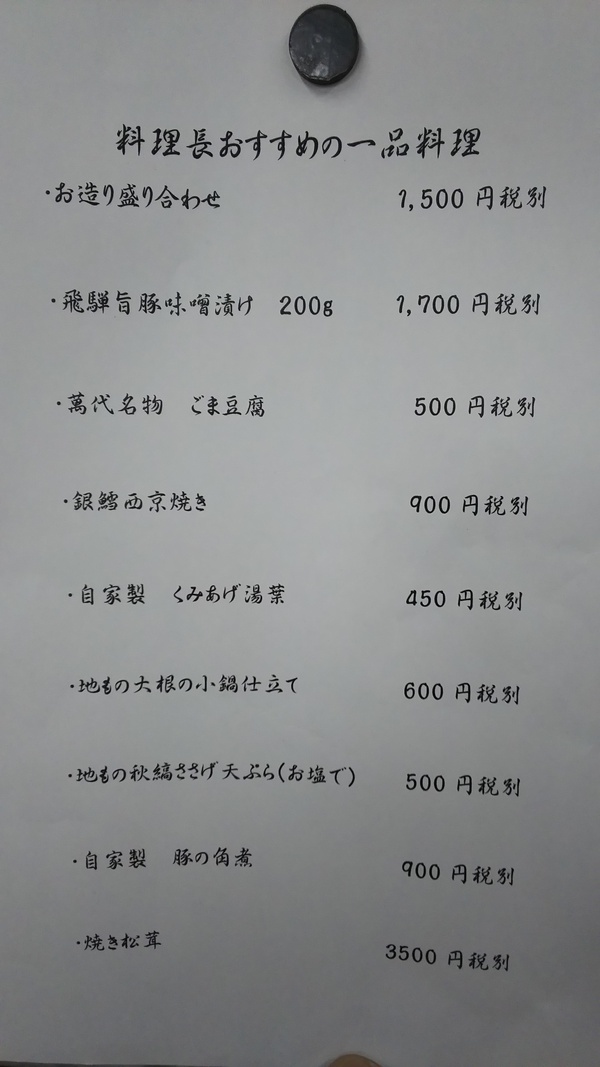 料理長おすすめの一品料理
・お造り盛り合わせ 1,500 円税別
・飛騨旨豚味噌漬け 200g 1,700 円税別
・萬代名物 ごま豆腐 500 円税別
・銀鱈西京焼き 900 円税別
・自家製 くみあげ湯葉 450 円税別
・地もの大根の小鍋仕立て 600 円税別
・地もの秋縞ささげ天ぷら(お塩で) 500 円税別
・自家製 豚の角煮 900 円税別
・焼き松茸 3500 円税別